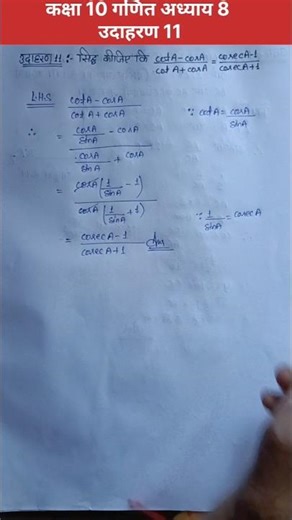 कक्षा 10 गणित अध्याय 8
उदाहरण 11
उदाहरण 11:- सिद्ध कीजिए कि (cotA - cosA)/(cotA + cosA) = (cosecA - 1)/(cosecA + 1)
L.H.S (cotA - cosA)/(cotA + cosA) ∵ cotA = cosA/sinA
∴ = (cosA/sinA - cosA)/(cosA/sinA + cosA)
= cosA(1/sinA - 1)/cosA(1/sinA + 1) ∵ 1/sinA = cosecA
= (cosecA - 1)/(cosecA + 1) Ans